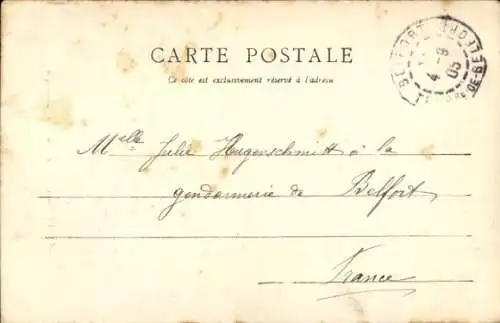 CARTE POSTALE
Ce côté est exclusivement réservé à l'adresse
BELFORT
4 -9
05
TERRE DE-BELFORT
Melle Julie Hugenschmitt à la
gendarmerie de Belfort
France